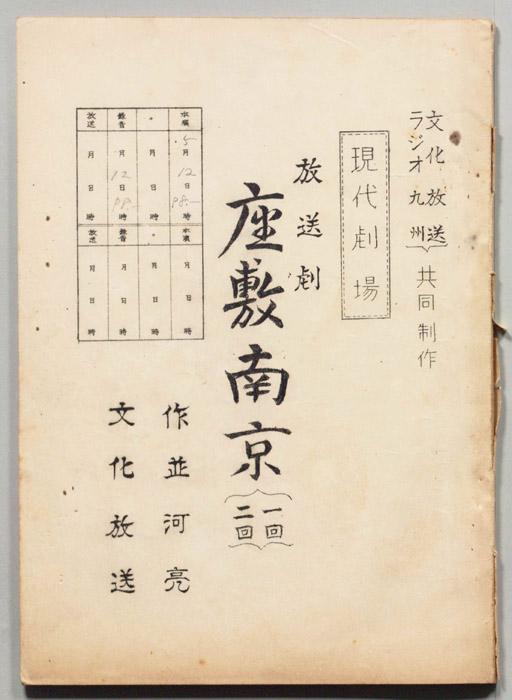 文化放送
ラジオ九州
共同制作
現代劇場
放送劇
座敷南京
一回
二回
作並河亮
文化放送
本讀 5月 12日 時
・ 月 日 時
録音 月 12日 時
放送 月 日 時
本讀 月 日 時
・ 月 日 時
録音 月 日 時
放送 月 日 時